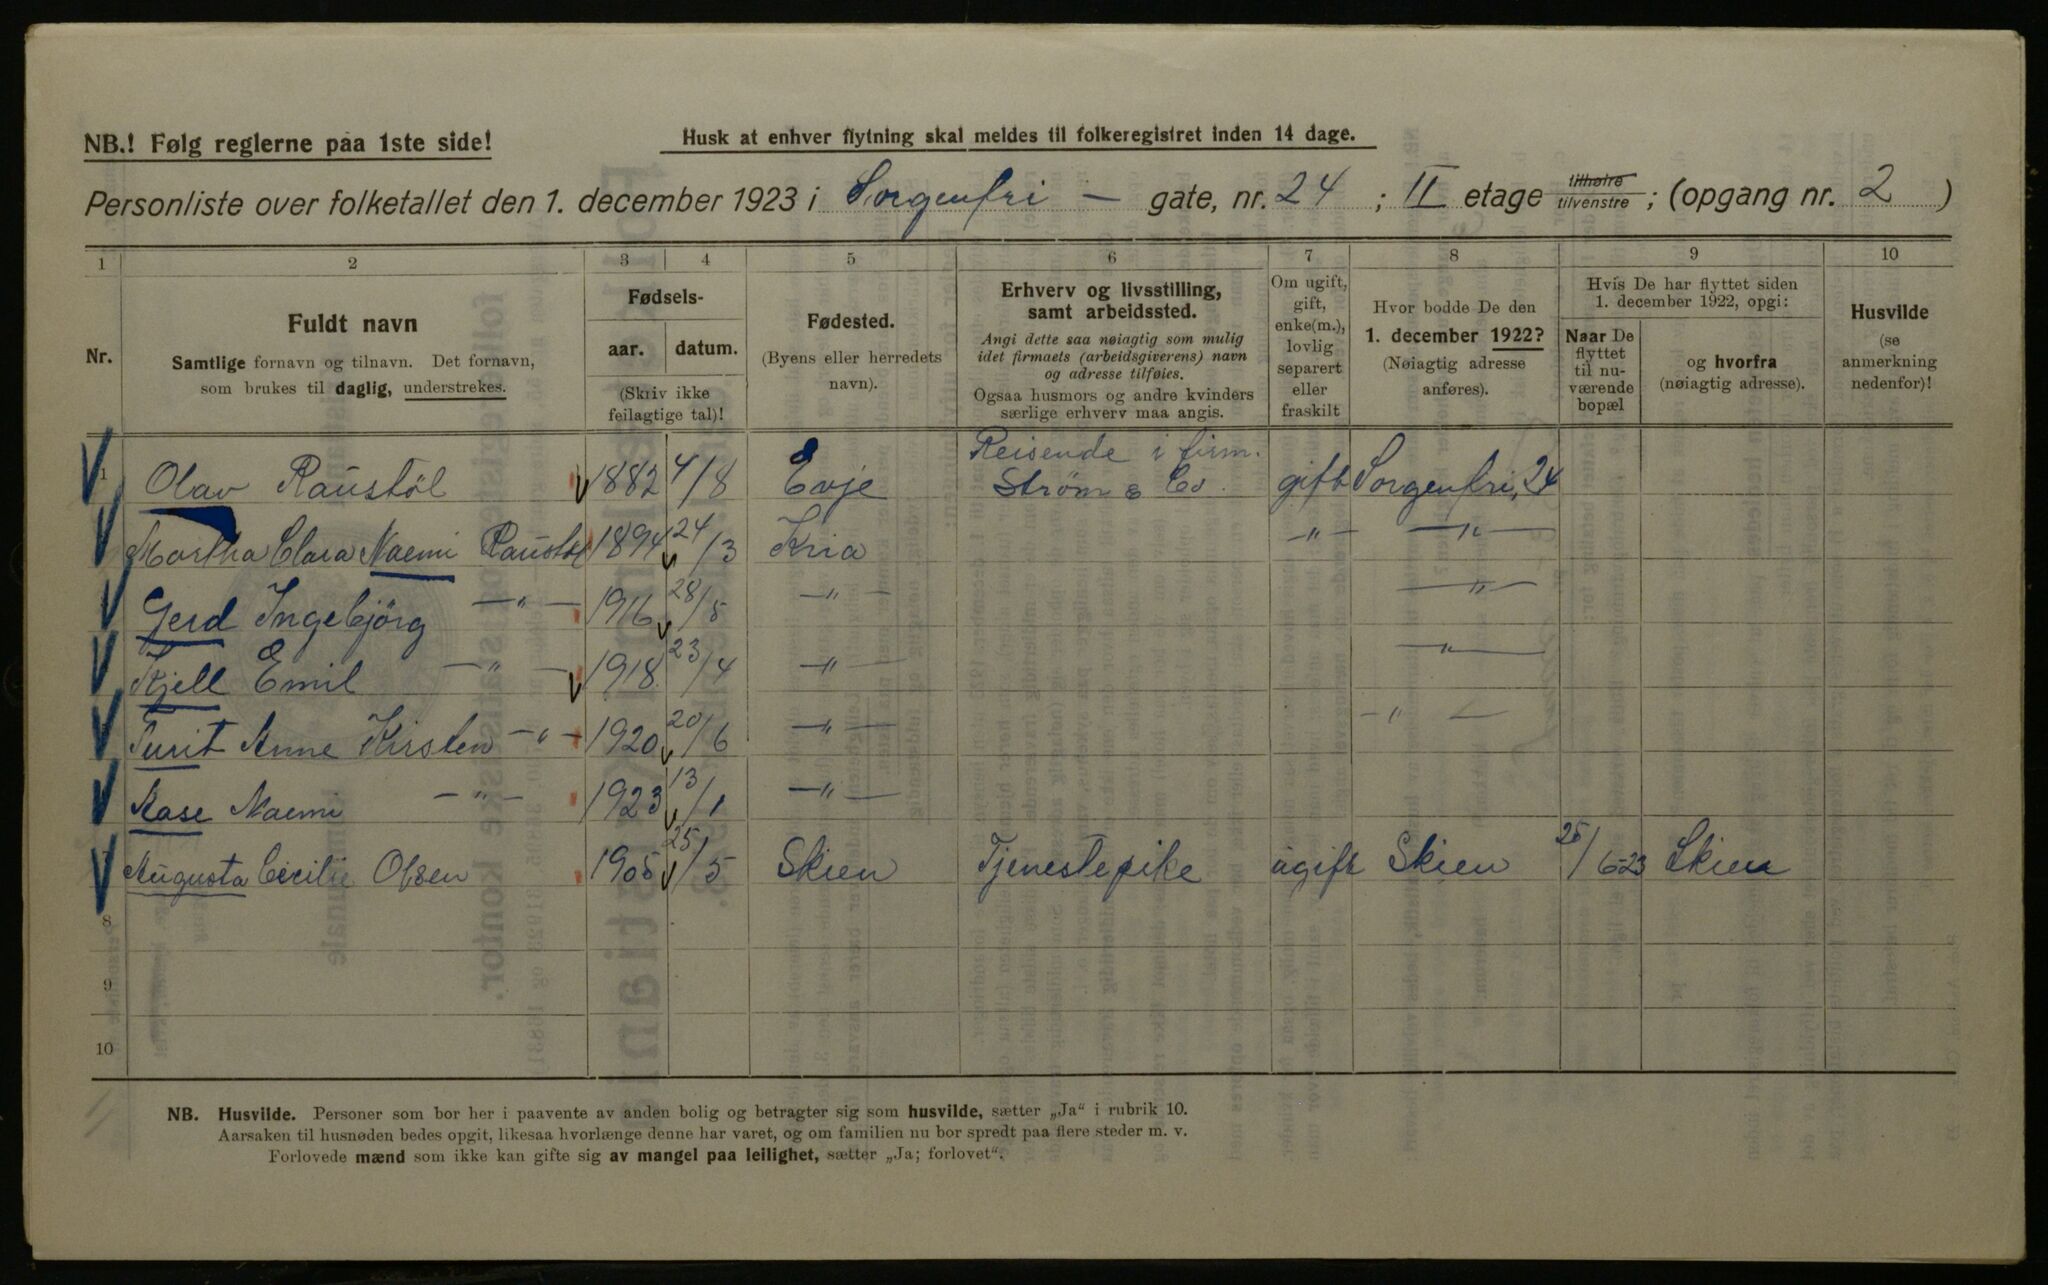 NB.! Følg reglerne paa 1ste side!
Husk at enhver flytning skal meldes til folkeregistret inden 14 dage.
Personliste over folketallet den 1. december 1923 i Sorgenfri — gate, nr. 24 ; II etage tilhøire tilvenstre ; (opgang nr. 2 )
1 2 3 4 5 6 7 8 9 10
Nr.
Fuldt navn
Samtlige fornavn og tilnavn. Det fornavn,
som brukes til daglig, understrekes.
Fødsels-
aar. datum.
(Skriv ikke
feilagtige tal)!
Fødested.
(Byens eller herredets
navn).
Erhverv og livsstilling,
samt arbeidssted.
Angi dette saa nøiagtig som mulig
idet firmaets (arbeidsgiverens) navn
og adresse tilføies.
Ogsaa husmors og andre kvinders
særlige erhverv maa angis.
Om ugift,
gift,
enke(m.),
lovlig
separert
eller
fraskilt
Hvor bodde De den
1. december 1922?
(Nøiagtig adresse
anføres).
Hvis De har flyttet siden
1. december 1922, opgi:
Naar De
flyttet
til nu-
værende
bopæl
og hvorfra
(nøiagtig adresse).
Husvilde
(se
anmerkning
nedenfor)!
1 Olav Raustöl 1882 4/8 Evje Reisende i firm. Strøm & Co. gift Sorgenfri, 24
Martha Clara Naemi Raustöl 1894 24/3 Kria —"— —"—
Gerd Ingebjörg —"— 1916 28/5 —"— —"—
Kjell Emil —"— 1918 23/4 —"— —"—
Turit Anne Kirsten —"— 1920 20/6 —"— —"—
Aase Naemi —"— 1923 13/1 —"—
7 Augusta Cecilie Olsen 1905 25/5 Skien Tjenestepike ugift Skien 25/6-23 Skien
8
9
10
NB. Husvilde. Personer som bor her i paavente av anden bolig og betragter sig som husvilde, sætter „Ja" i rubrik 10.
Aarsaken til husnøden bedes opgit, likesaa hvorlænge denne har varet, og om familien nu bor spredt paa flere steder m. v.
Forlovede mænd som ikke kan gifte sig av mangel paa leilighet, sætter „Ja; forlovet".